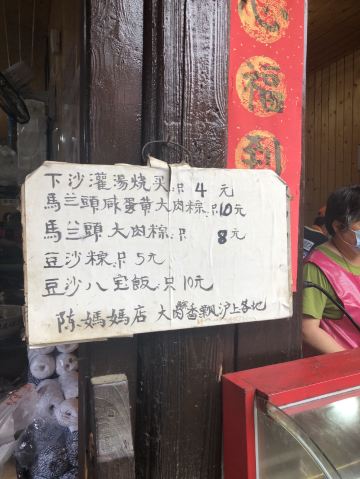 心
福
到
下沙灌汤烧买只4元
馬兰頭咸蛋黄大肉粽只10元
馬兰頭大肉粽只8元
豆沙粽只5元
豆沙八宝飯只10元
陈媽媽店 大肉香飘沪上各地